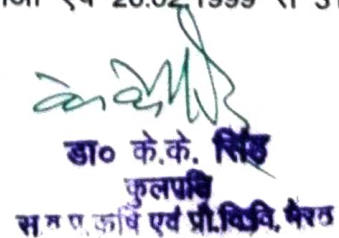 एवं 26.02.1999
डा० के.के. सिंह
कुलपति
कृषि एवं प्रौ.विवि, मेरठ